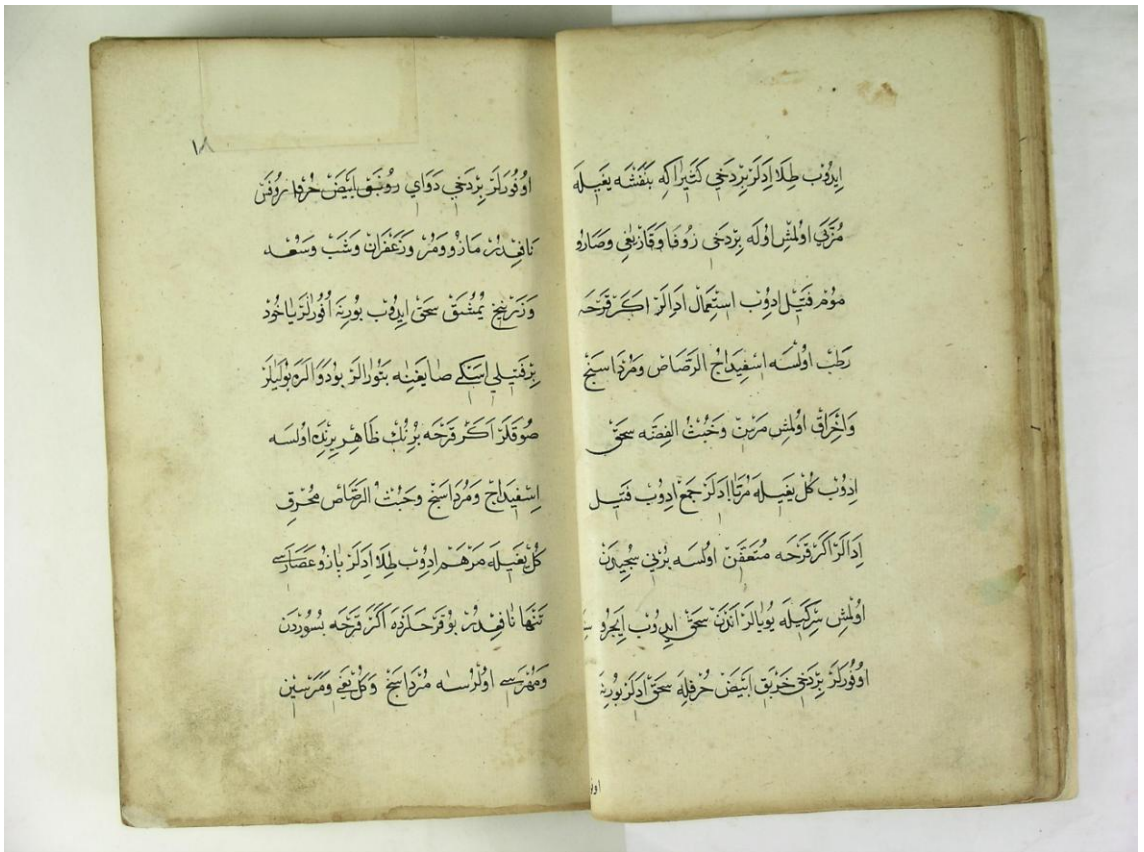 ايدوب طلا ادلر بردخي كتيرا كه بنفشه يغيله
مزني اولمش اوله بردخي زوفا وقاز يغي وصارو
موم فتيل ادوب استعمال ادرلر اكر قرحه
رطب اولسه اسفيداج الرصاص ومرداسنج
واحراق اولمش مرسن وخبث الفضه سحق
ادوب كل يغيله مرتا ادلر جمع ادوب فتيل
ادلر اكر قرحه متعفن اولسه بزني سجيدن
اولمش سركيله يويالر اندن سحق ايدوب ايجرو
اوفورلر بردخي خربق ابيض حرفله سحق ادلر بورنه
اوفو
١٨
اوفورلر بردخي دواي رونبق ابيض حرفا
نافعدر مازو ومر وزعفران وشب وسعد
وزرنيخ يمشق سحق ايدوب بورنه اوفورلر ياخود
بر فتيلي اسكي صابغنه بتورالر بودوالره بوليلر
صوقلر اكر قرحه بزنك ظاهر يرنك اولسه
اسفيداج ومرداسنج وخبث الرصاص محرق
كل يغيله مرهم ادوب طلا ادلر يازو عصارسي
تنها نافعدر بو قرحلرده اكر قرحه بسوردن
اولرسه مرداسنج وكل يغي ومرسين